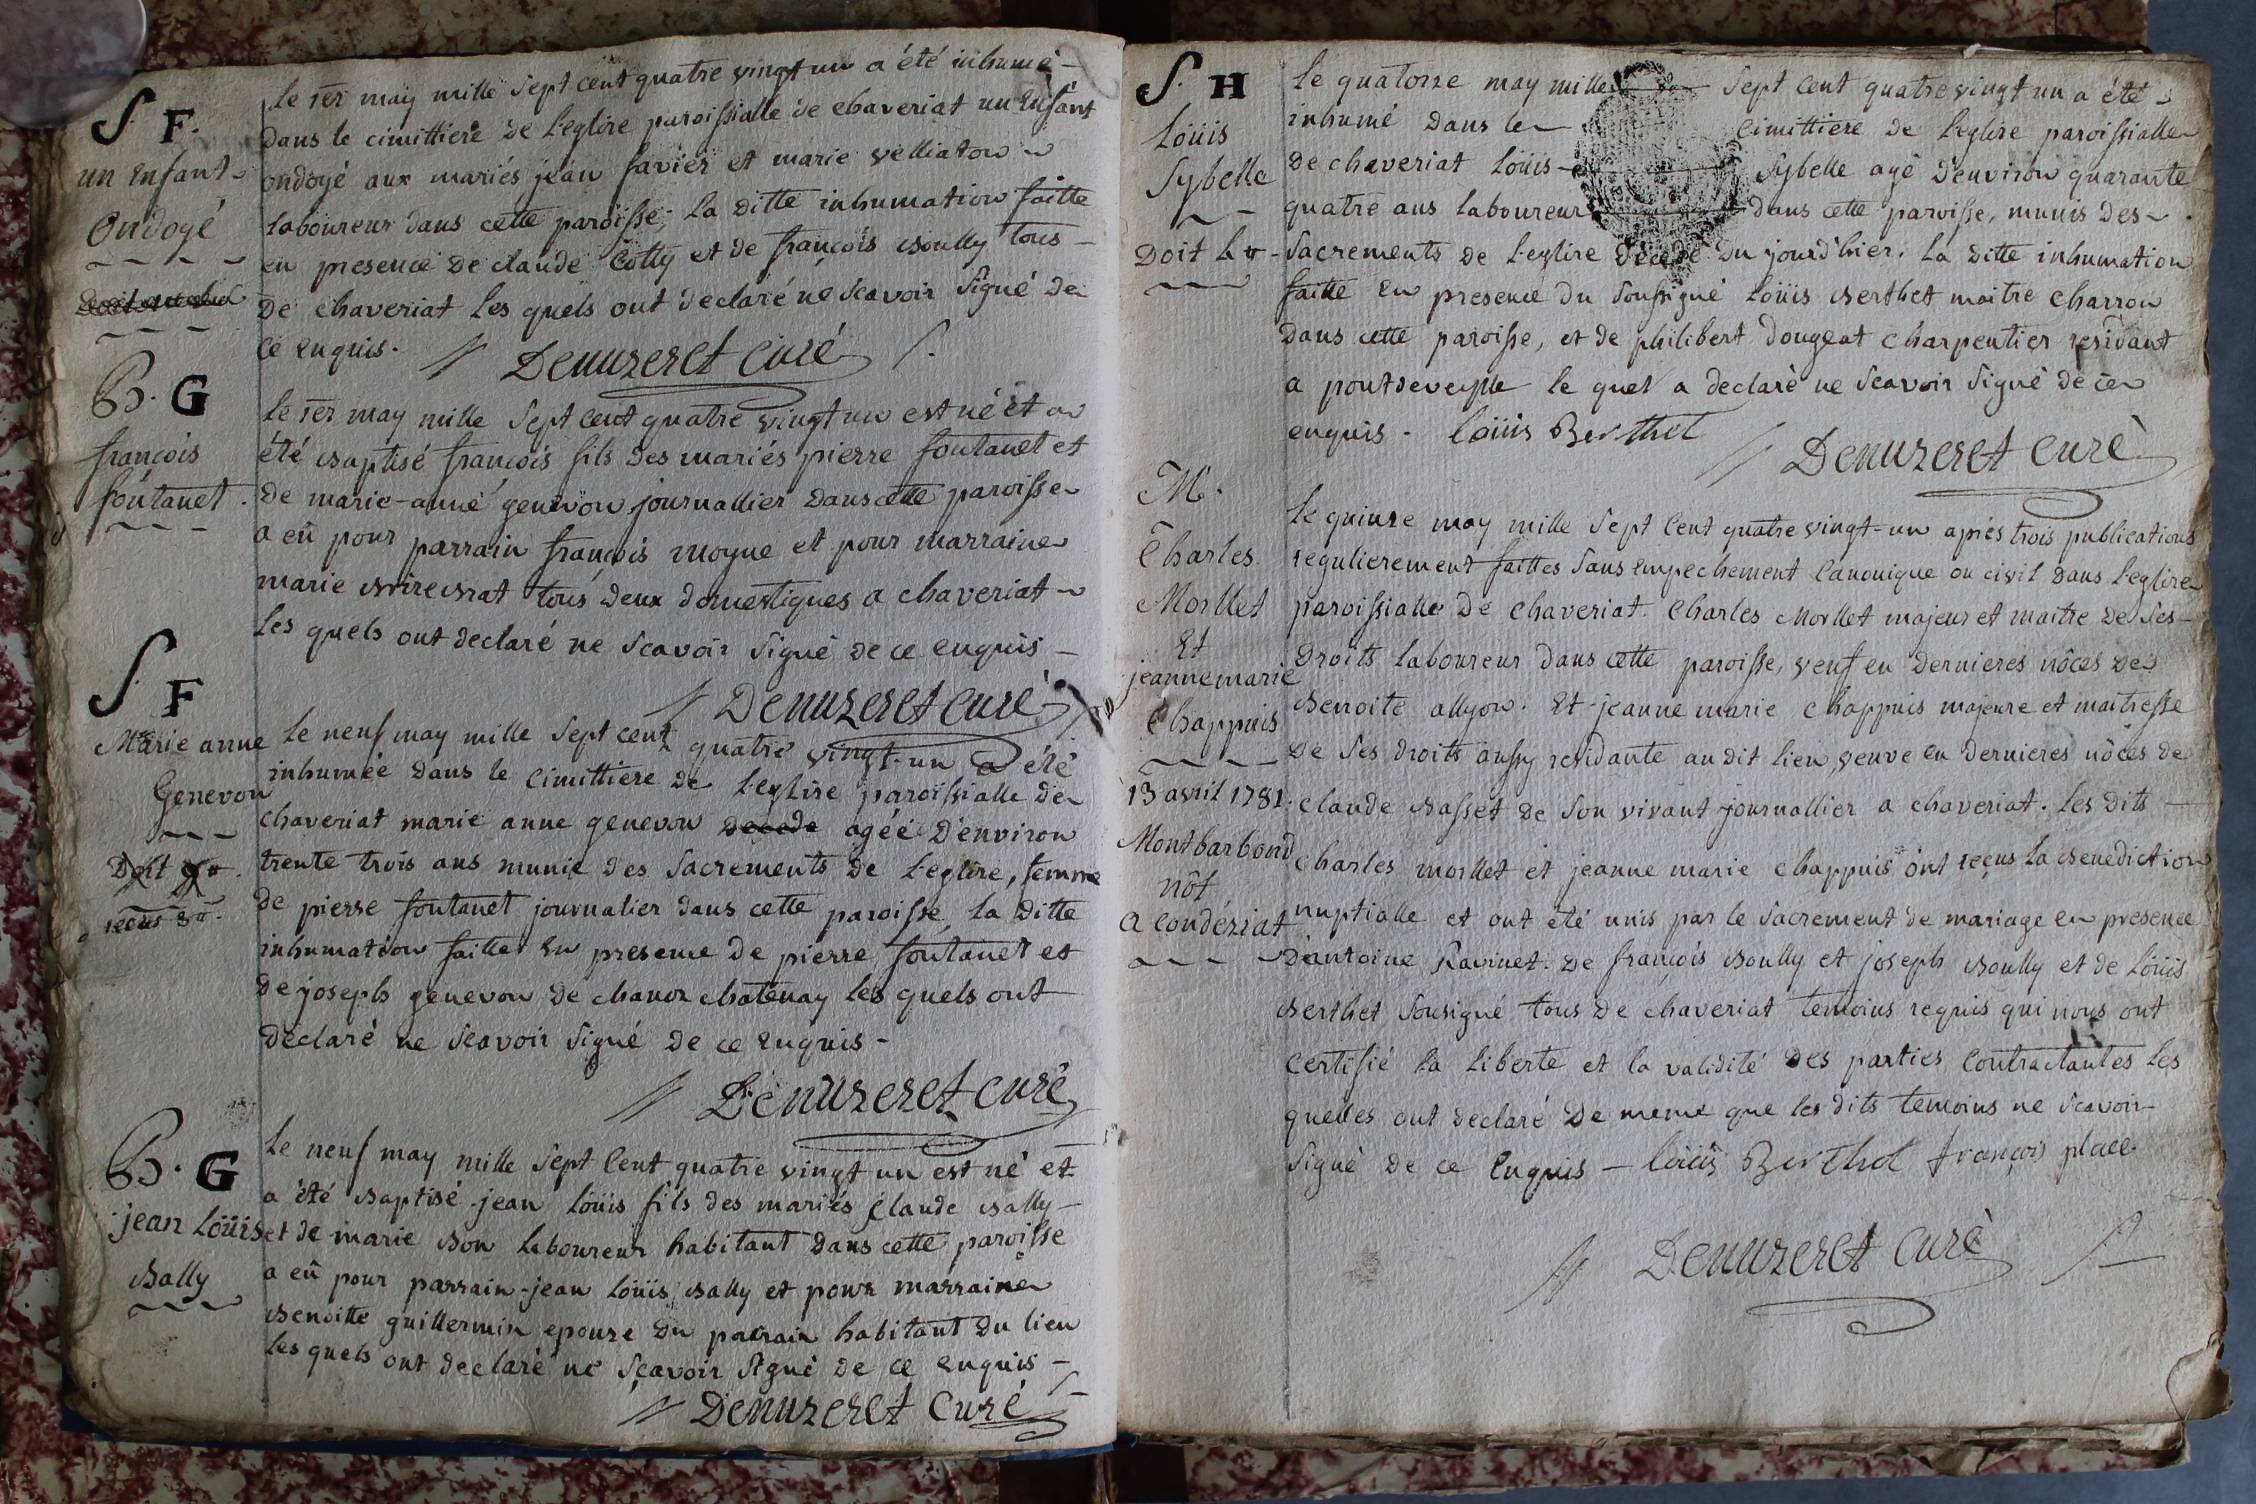 S F.
un enfant
ondoyé
le 1er may mille sept cent quatre vingt un a été inhumé
dans le cimittiere de l'eglise paroissialle de chaveriat un enfant
ondoyé aux mariés jean favier et marie velliaton
laboureur dans cette paroisse, la ditte inhumation faitte
en presence de claude Cotty et de francois boully tous
de chaveriat les quels ont declaré ne scavoir signé de
ce enquis.
Denuzeret curé
B. G
francois
fontanet.
le 1er may mille sept cent quatre vingt un est né et a
été baptisé francois fils des mariés pierre fontanet et
de marie-anne genevon journallier dans cette paroisse
a eü pour parrain francois moyne et pour marraine
marie brirebrat tous deux domestiques a chaveriat
les quels ont declaré ne scavoir signé de ce enquis
Denuzeret curé
S. F
Marie anne
Genevon
Doit
recus 3#.
le neuf may mille sept cent quatre vingt-un a été
inhumée dans le cimittiere de l'eglise paroissialle de
chaveriat marie anne genevon decede agée d'environ
trente trois ans munie des sacrements de l'eglise, femme
de pierre fontanet journalier dans cette paroisse, la ditte
inhumation faitte en presence de pierre fontanet et
de joseph genevon de chanoz chatenay les quels ont
declaré ne scavoir signé de ce enquis -
Denuzeret curé
B. G
jean Loüis
bally
le neuf may mille sept cent quatre vingt un est né et
a été baptisé jean loüis fils des mariés claude bally
et de marie bon laboureur habitant dans cette paroisse
a eü pour parrain jean loüis bally et pour marraine
benoitte guillermin epouse du parrain habitant du lieu
les quels ont declaré ne scavoir signé de ce enquis -
Denuzeret curé
S. H
Loüis
Sybelle
Doit
le quatorze may mille sept cent quatre vingt un a été
inhumé dans le cimittiere de l'eglise paroissialle
de chaveriat Loüis Sybelle agé d'environ quarante
quatre ans laboureur dans cette paroisse, munis des
sacrements de l'eglise décédé du jourd'hier. la ditte inhumation
faitte en presence du soussigné loüis berthet maitre charron
dans cette paroisse, et de philibert dougeat charpentier residant
a pontdeveyle le quel a declaré ne scavoir signé de ce
enquis - loüis Berthet
Denuzeret curé
M.
Charles
Morllet
Et
jeanne marie
Chappuis
13 avril 1781.
Montbarbond
nôt
a condéziat
le quinze may mille sept cent quatre vingt-un aprés trois publications
regulierement faittes sans empechement canonique ou civil dans l'eglise
paroissialle de chaveriat. Charles Morllet majeur et maitre de ses
droits laboureur dans cette paroisse, veuf en dernieres nôces de
benoite allyon. Et jeanne marie chappuis majeure et maitresse
de ses droits aussy residante au dit lieu, veuve en dernieres nôces de
claude basset de son vivant journallier a chaveriat. les dits
charles morllet et jeanne marie chappuis ont reçus la benediction
nuptialle et ont été unis par le sacrement de mariage en presence
d'antoine Ravinet. de francois boully et joseph boully et de loüis
berthet sousigné tous de chaveriat temoins requis qui nous ont
certifié la liberte et la validité des parties contractantes les
quelles ont declaré de meme que les dits temoins ne scavoir
signé de ce enquis - loüis Berthet françois place
Denuzeret curé